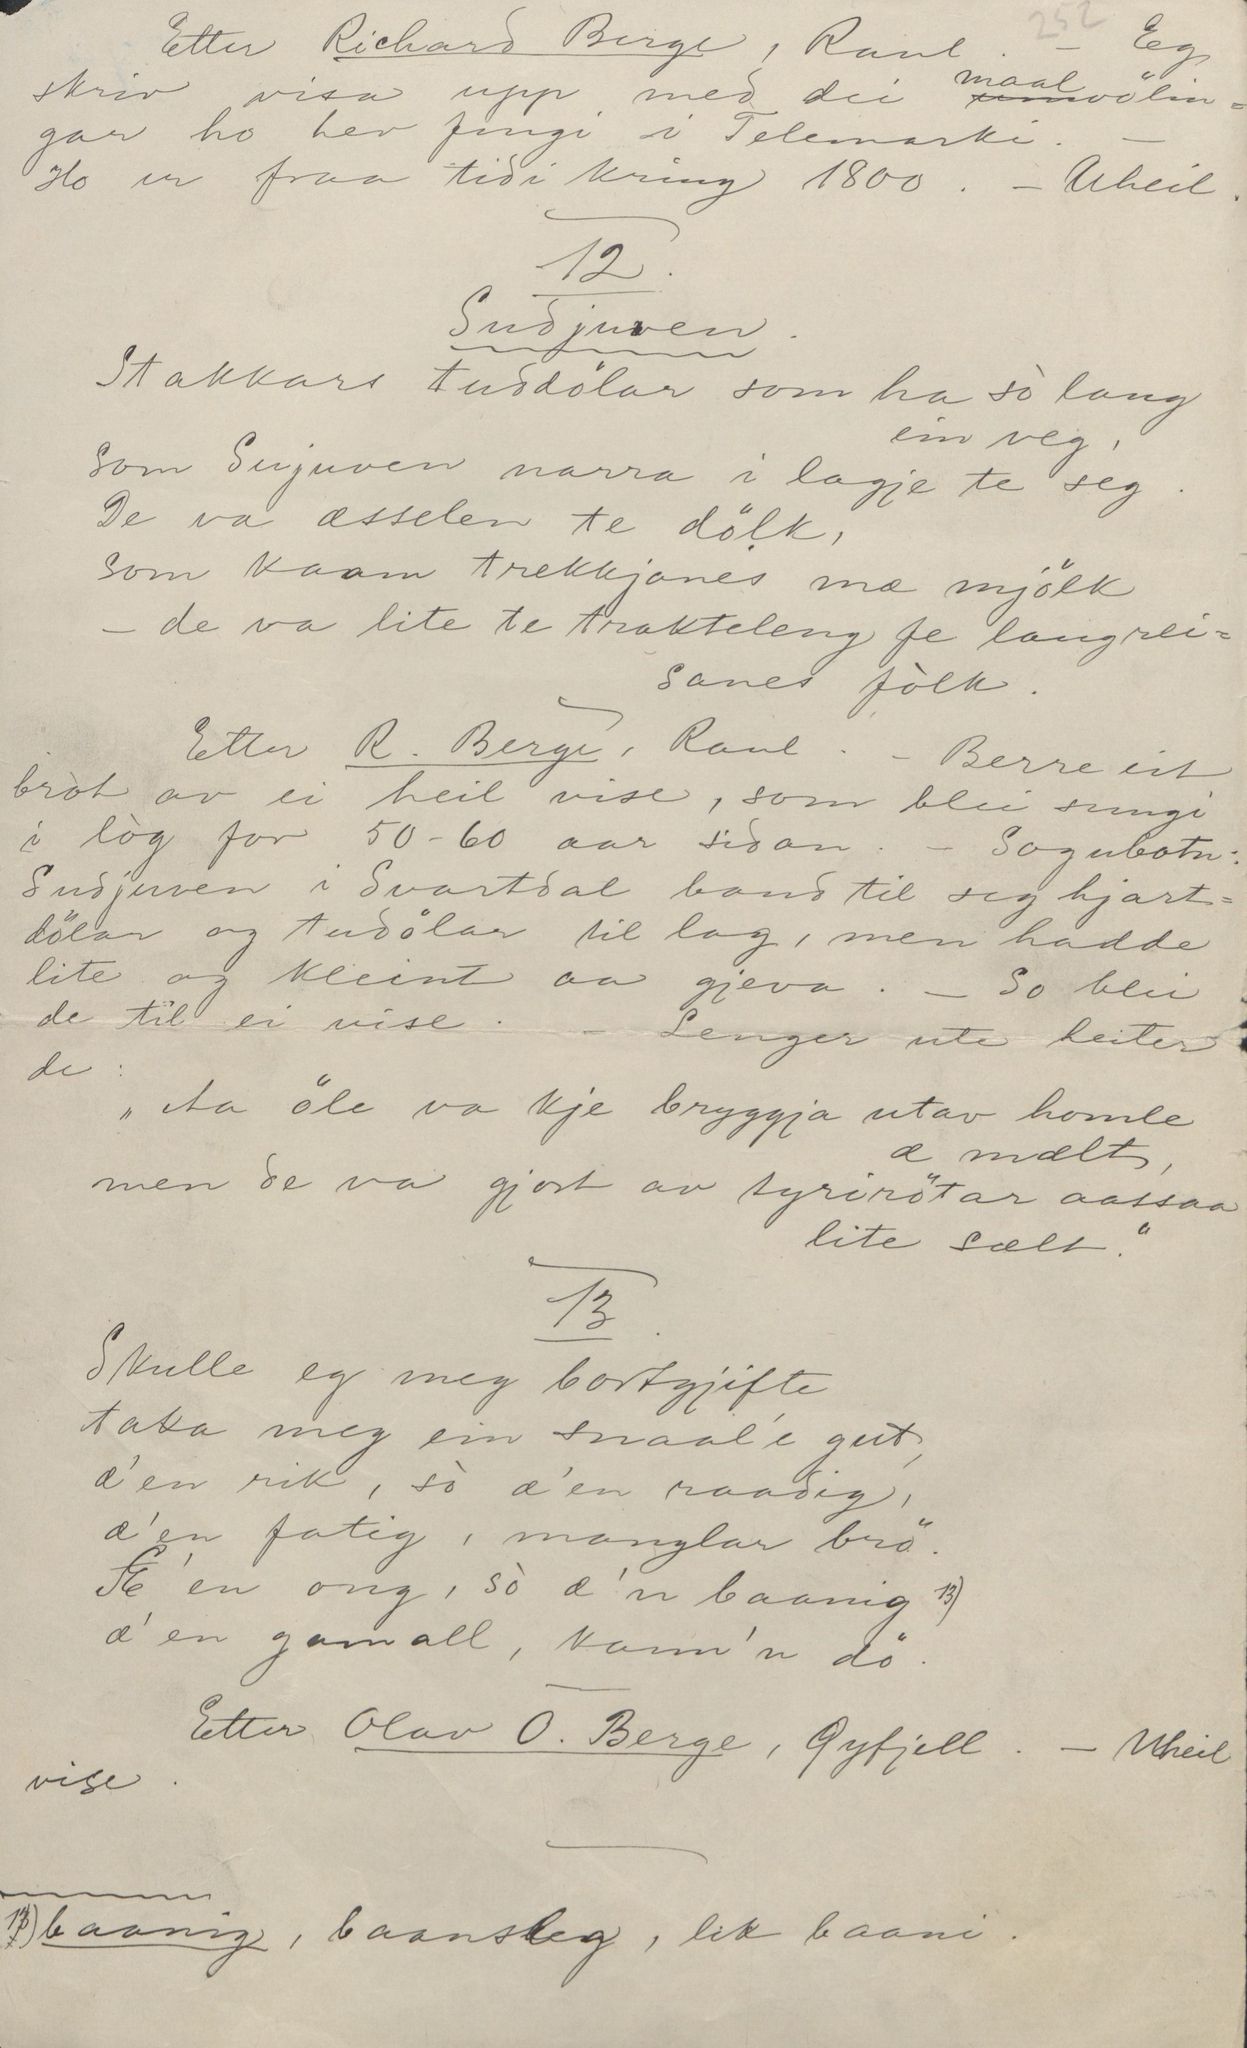 252
Etter Richard Berge, Raul. – Eg
skriv visa upp med dei maalvölin=
gar ho hev fengi i Telemarki. –
Ho er fraa tidi kring 1800. – Uheil.
12.
Sudjuven.
Stakkars tuddölar som ha sò lang
ein veg,
som Sujuven narra i lagje te seg.
De va æsselen te dölk,
som kaam trekkjanes mæ mjölk
– de va lite te trakteleng fe langrei=
sanes fòlk.
Etter R. Berge, Raul. – Berre eit
bròt av ei heil vise, som blei sungi
i lòg for 50-60 aar sidan. – Sogubotn:
Sudjuven i Svartdal baud til seg hjart=
dölar og tudölar til lag, men hadde
lite og kleint aa gjeva. – So blei
de til ei vise. – Lenger ute heiter
de:
„Aa öle va kje bryggja utav homle
æ mælt,
men de va gjort av tyrirötar aassaa
lite sælt."
13.
Skulle eg meg bortgjifte
taka meg ein snaal'e gut,
æ'en rik, sò æ'en raadig,
æ'en fatig, manglar brö.
Æ'en ong, sò æ'n baanig 13)
æ'en gamall, kann'n dö.
Etter Olav O. Berge, Öyfjell. – Uheil
vise.
13) baanig, baansleg, lik baani.